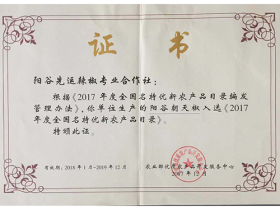 证 书
阳谷先运辣椒专业合作社：
根据《2017 年度全国名特优新农产品目录编发
管理办法》，你单位生产的阳谷朝天椒入选《2017
年度全国名特优新农产品目录》。
特颁此证。
有效期：2018 年 1 月-2019 年 12 月
农业部优质农产品开发服务中心
2017 年 12 月